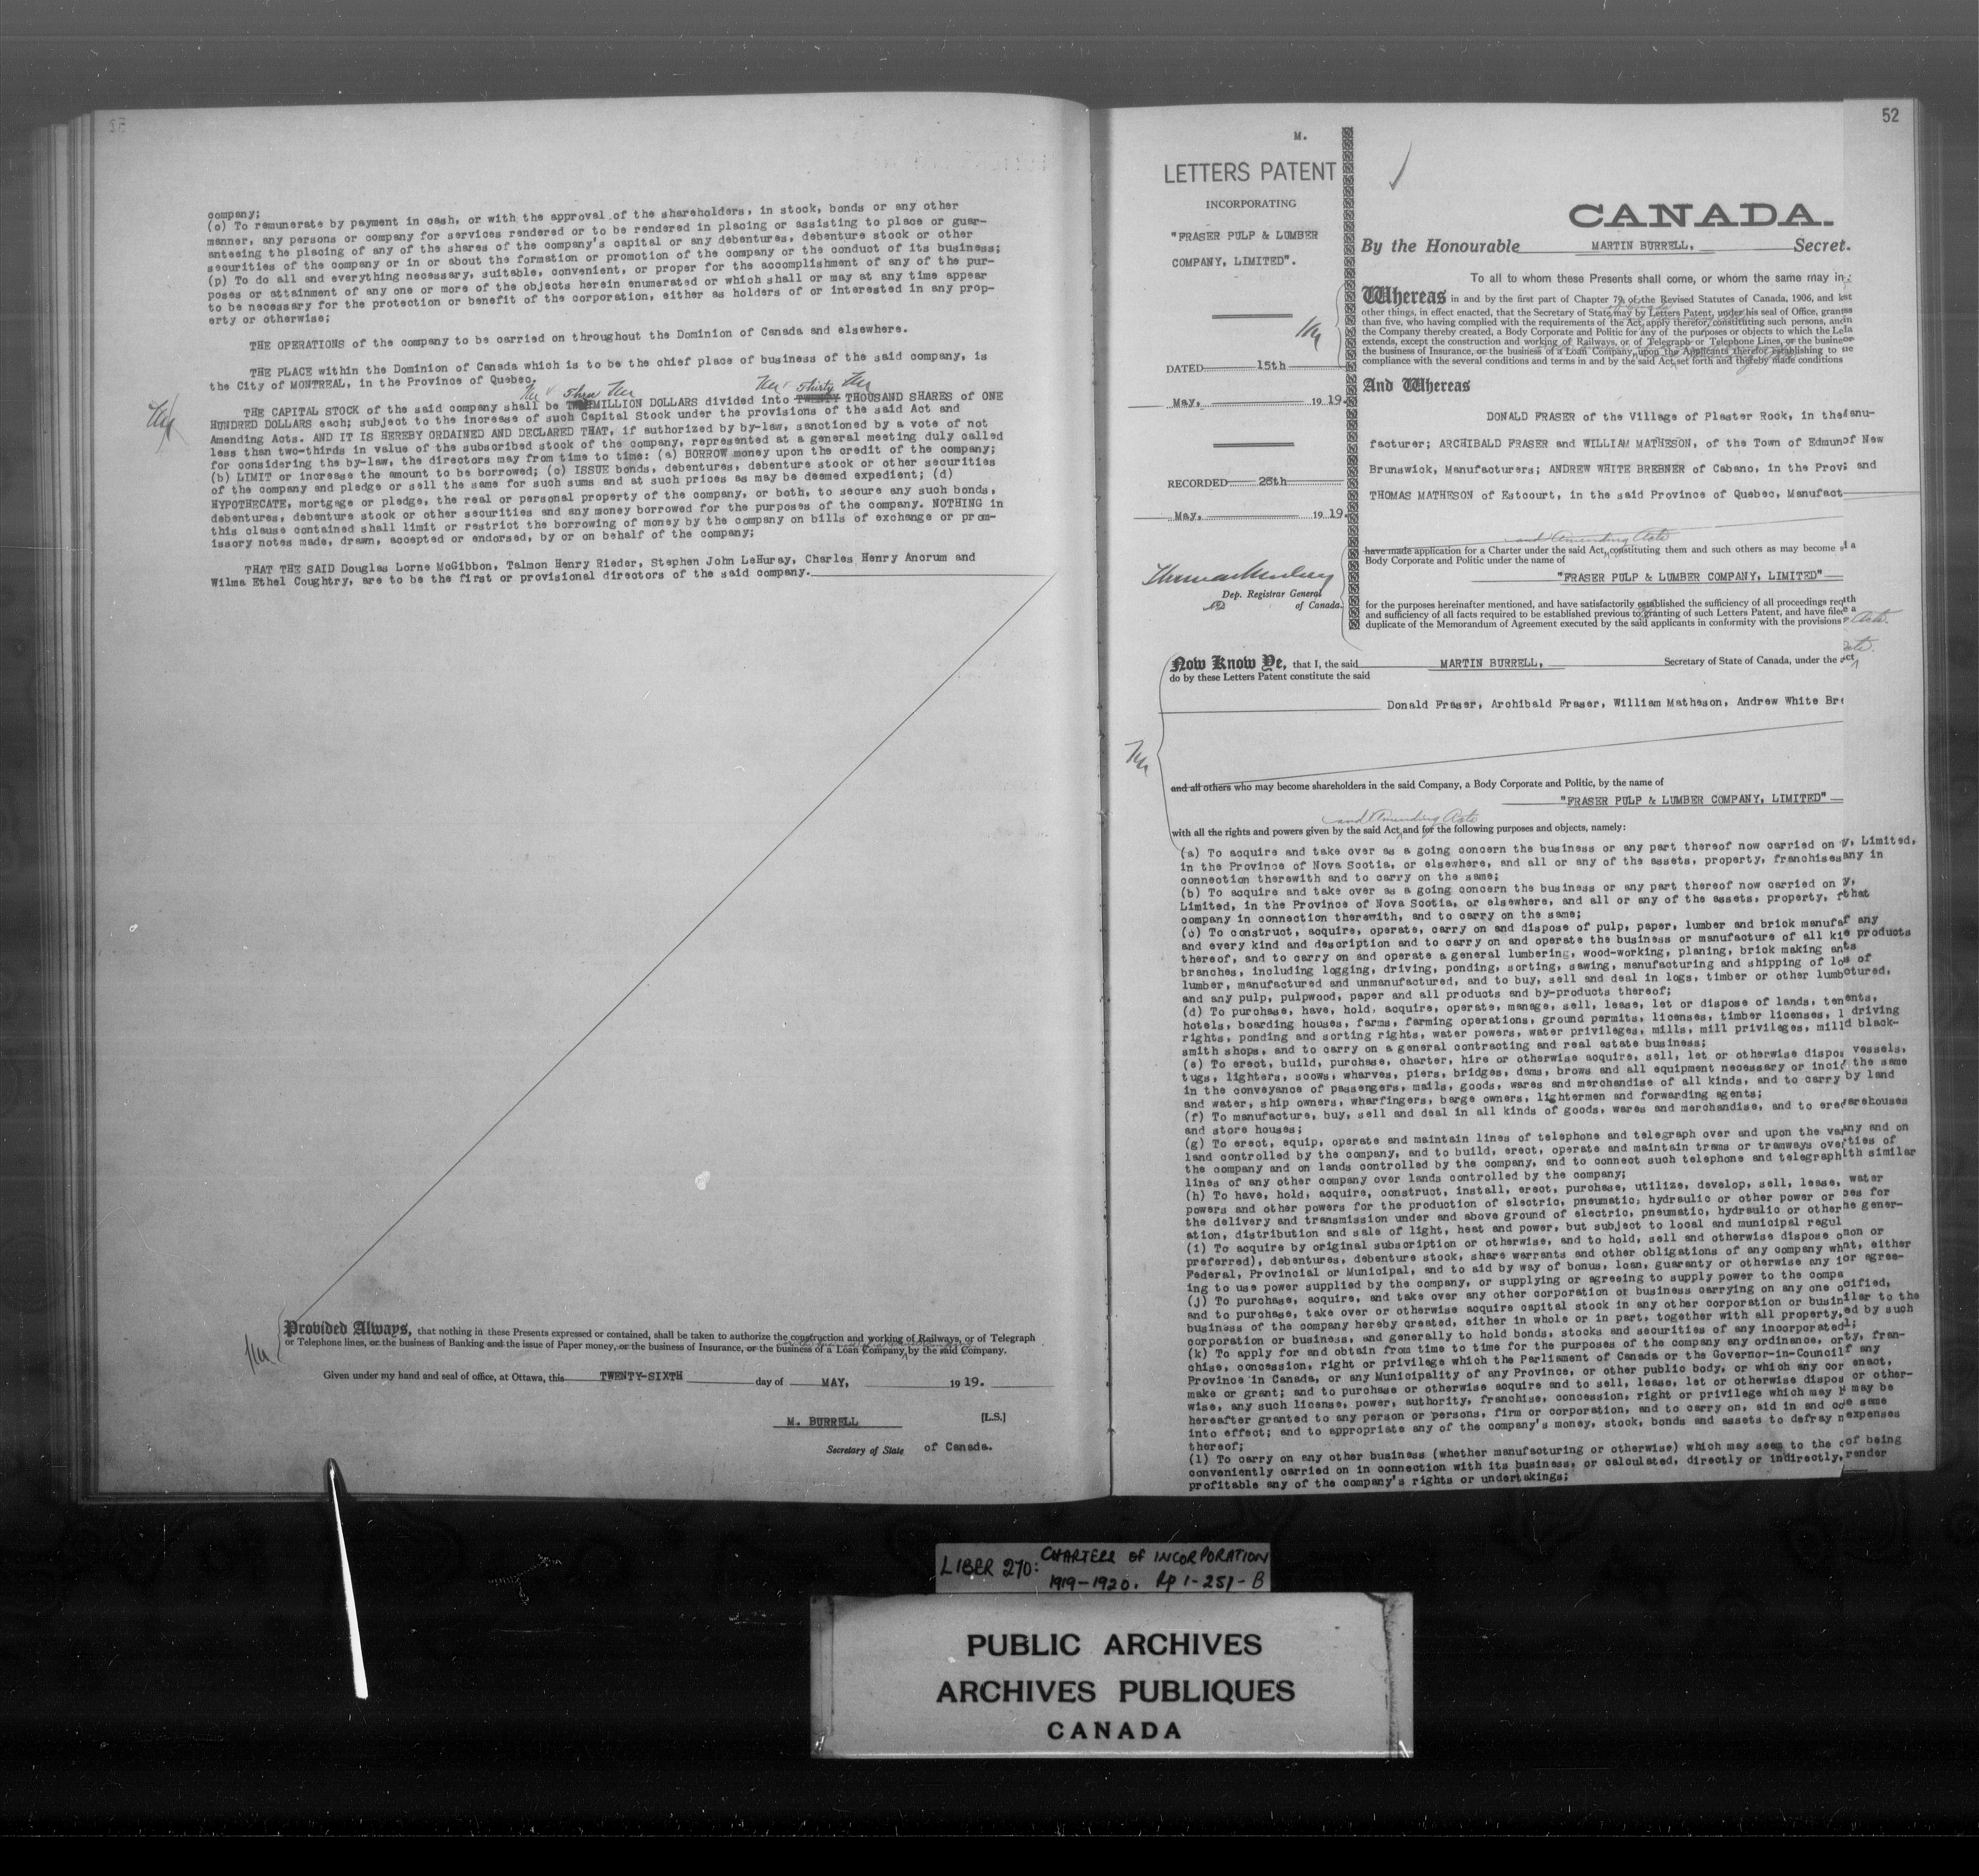 company;
(o) To remunerate by payment in cash, or with the approval of the shareholders, in stock, bonds or any other
manner, any persons or company for services rendered or to be rendered in placing or assisting to place or guar-
anteeing the placing of any of the shares of the company's capital or any debentures, debenture stock or other
securities of the company or in or about the formation or promotion of the company or the conduct of its business;
(p) To do all and everything necessary, suitable, convenient, or proper for the accomplishment of any of the pur-
poses or attainment of any one or more of the objects herein enumerated or which shall or may at any time appear
to be necessary for the protection or benefit of the corporation, either as holders of or interested in any prop-
erty or otherwise;
THE OPERATIONS of the company to be carried on throughout the Dominion of Canada and elsewhere.
THE PLACE within the Dominion of Canada which is to be the chief place of business of the said company, is
the City of MONTREAL, in the Province of Quebec.
Three Thirty
THE CAPITAL STOCK of the said company shall be MILLION DOLLARS divided into TWENTY THOUSAND SHARES of ONE
HUNDRED DOLLARS each; subject to the increase of such Capital Stock under the provisions of the said Act and
Amending Acts. AND IT IS HEREBY ORDAINED AND DECLARED THAT, if authorized by by-law, sanctioned by a vote of not
less than two-thirds in value of the subscribed stock of the company, represented at a general meeting duly called
for considering the by-law, the directors may from time to time: (a) BORROW money upon the credit of the company;
(b) LIMIT or increase the amount to be borrowed; (c) ISSUE bonds, debentures, debenture stock or other securities
of the company and pledge or sell the same for such sums and at such prices as may be deemed expedient; (d)
HYPOTHECATE, mortgage or pledge, the real or personal property of the company, or both, to secure any such bonds,
debentures, debenture stock or other securities and any money borrowed for the purposes of the company. NOTHING in
this clause contained shall limit or restrict the borrowing of money by the company on bills of exchange or prom-
issory notes made, drawn, accepted or endorsed, by or on behalf of the company;
THAT THE SAID Douglas Lorne McGibbon, Talmon Henry Rieder, Stephen John LeHuray, Charles Henry Ancrum and
Wilma Ethel Coughtry, are to be the first or provisional directors of the said company.
Provided Always, that nothing in these Presents expressed or contained, shall be taken to authorize the construction and working of Railways, or of Telegraph
or Telephone lines, or the business of Banking and the issue of Paper money, or the business of Insurance, or the business of a Loan Company, by the said Company.
Given under my hand and seal of office, at Ottawa, this TWENTY-SIXTH day of MAY, 19 19.
M. BURRELL [L.S.]
Secretary of State of Canada.
52
M.
LETTERS PATENT
INCORPORATING
"FRASER PULP & LUMBER
COMPANY, LIMITED".
DATED 15th
May, 19 19.
RECORDED 26th
May, 19 19.
Dep. Registrar General
of Canada.
CANADA.
By the Honourable MARTIN BURRELL, Secret.
To all to whom these Presents shall come, or whom the same may in
Whereas in and by the first part of Chapter 79, of the Revised Statutes of Canada, 1906, and
other things, in effect enacted, that the Secretary of State may by Letters Patent, under his seal of Office, grant
than five, who having complied with the requirements of the Act, apply therefor, constituting such persons, an
the Company thereby created, a Body Corporate and Politic for any of the purposes or objects to which the Le
extends, except the construction and working of Railways, or of Telegraph or Telephone Lines, or the busine
the business of Insurance, or the business of a Loan Company, upon the Applicants therefor establishing to
compliance with the several conditions and terms in and by the said Act, set forth and thereby made conditions
And Whereas
DONALD FRASER of the Village of Plaster Rock, in the anu-
facturer; ARCHIBALD FRASER and WILLIAM MATHESON, of the Town of Edmun of New
Brunswick, Manufacturers; ANDREW WHITE BREBNER of Cabano, in the Provi and
THOMAS MATHESON of Estcourt, in the said Province of Quebec, Manufact
and Amending Acts
have made application for a Charter under the said Act, constituting them and such others as may become a
Body Corporate and Politic under the name of
"FRASER PULP & LUMBER COMPANY, LIMITED"
for the purposes hereinafter mentioned, and have satisfactorily established the sufficiency of all proceedings req
and sufficiency of all facts required to be established previous to granting of such Letters Patent, and have filed a
duplicate of the Memorandum of Agreement executed by the said applicants in conformity with the provisions Acts.
Now Know Ye, that I, the said MARTIN BURRELL, Secretary of State of Canada, under the Act
do by these Letters Patent constitute the said
Donald Fraser, Archibald Fraser, William Matheson, Andrew White Br
and all others who may become shareholders in the said Company, a Body Corporate and Politic, by the name of
"FRASER PULP & LUMBER COMPANY, LIMITED"
and Amending Acts
with all the rights and powers given by the said Act, and for the following purposes and objects, namely:
(a) To acquire and take over as a going concern the business or any part thereof now carried on y, Limited,
in the Province of Nova Scotia, or elsewhere, and all or any of the assets, property, franchises any in
connection therewith and to carry on the same;
(b) To acquire and take over as a going concern the business or any part thereof now carried on y,
Limited, in the Province of Nova Scotia, or elsewhere, and all or any of the assets, property, that
company in connection therewith, and to carry on the same;
(c) To construct, acquire, operate, carry on and dispose of pulp, paper, lumber and brick manufa any
and every kind and description and to carry on and operate the business or manufacture of all ki products
thereof, and to carry on and operate a general lumbering, wood-working, planing, brick making ants
branches, including logging, driving, ponding, sorting, sawing, manufacturing and shipping of lo of
lumber, manufactured and unmanufactured, and to buy, sell and deal in logs, timber or other lumb ctured,
and any pulp, pulpwood, paper and all products and by-products thereof;
(d) To purchase, have, hold, acquire, operate, manage, sell, lease, let or dispose of lands, ten ents,
hotels, boarding houses, farms, farming operations, ground permits, licenses, timber licenses, l driving
rights, ponding and sorting rights, water powers, water privileges, mills, mill privileges, mill d black-
smith shops, and to carry on a general contracting and real estate business;
(e) To erect, build, purchase, charter, hire or otherwise acquire, sell, let or otherwise dispo vessels,
tugs, lighters, scows, wharves, piers, bridges, dams, brows and all equipment necessary or inci the same
in the conveyance of passengers, mails, goods, wares and merchandise of all kinds, and to carry by land
and water, ship owners, wharfingers, barge owners, lightermen and forwarding agents;
(f) To manufacture, buy, sell and deal in all kinds of goods, wares and merchandise, and to ere warehouses
and store houses;
(g) To erect, equip, operate and maintain lines of telephone and telegraph over and upon the va any and on
land controlled by the company, and to build, erect, operate and maintain trams or tramways over ties of
the company and on lands controlled by the company, and to connect such telephone and telegraph ith similar
lines of any other company over lands controlled by the company;
(h) To have, hold, acquire, construct, install, erect, purchase, utilize, develop, sell, lease, water
powers and other powers for the production of electric, pneumatic, hydraulic or other power or ces for
the delivery and transmission under and above ground of electric, pneumatic, hydraulic or other he gener-
ation, distribution and sale of light, heat and power, but subject to local and municipal regul
(i) To acquire by original subscription or otherwise, and to hold, sell and otherwise dispose o mon or
preferred), debentures, debenture stock, share warrants and other obligations of any company wh nt, either
Federal, Provincial or Municipal, and to aid by way of bonus, loan, guaranty or otherwise any or agree-
ing to use power supplied by the company, or supplying or agreeing to supply power to the compa
(j) To purchase, acquire, and take over any other corporation or business carrying on any one o cified,
and to purchase, take over or otherwise acquire capital stock in any other corporation or busin ilar to the
business of the company hereby created, either in whole or in part, together with all property, ed by such
corporation or business, and generally to hold bonds, stocks and securities of any incorporated
(k) To apply for and obtain from time to time for the purposes of the company any ordinance, or ty, fran-
chise, concession, right or privilege which the Parliament of Canada or the Governor-in-Council f any
Province in Canada, or any Municipality of any Province, or other public body, or which any cor enact,
make or grant; and to purchase or otherwise acquire and to sell, lease, let or otherwise dispos or other-
wise, any such license, power, authority, franchise, concession, right or privilege which may may be
hereafter granted to any person or persons, firm or corporation, and to carry on, aid in and same
into effect; and to appropriate any of the company's money, stock, bonds and assets to defray expenses
thereof;
(l) To carry on any other business (whether manufacturing or otherwise) which may seem to the c of being
conveniently carried on in connection with its business, or calculated, directly or indirectly, render
profitable any of the company's rights or undertakings;
LIBER 270: CHARTERS OF INCORPORATION
1919-1920. Pp 1-251-B
PUBLIC ARCHIVES
ARCHIVES PUBLIQUES
CANADA